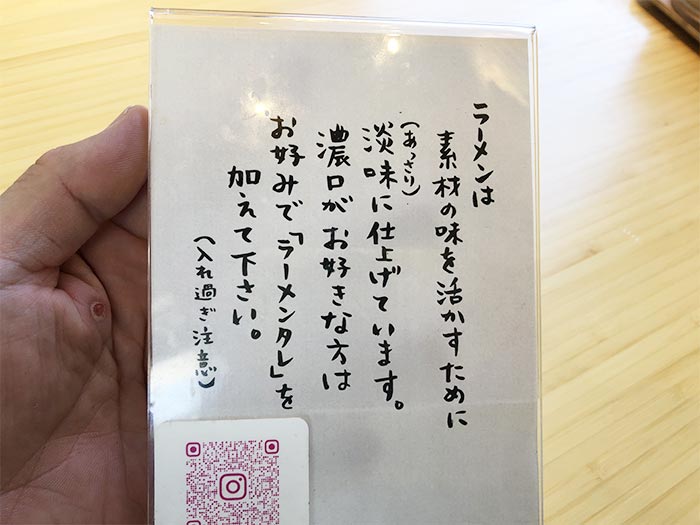 ラーメンは
素材の味を活かすために
(あっさり)
淡味に仕上げています。
濃口がお好きな方は
お好みで「ラーメンタレ」を
加えて下さい。
(入れ過ぎ注意)